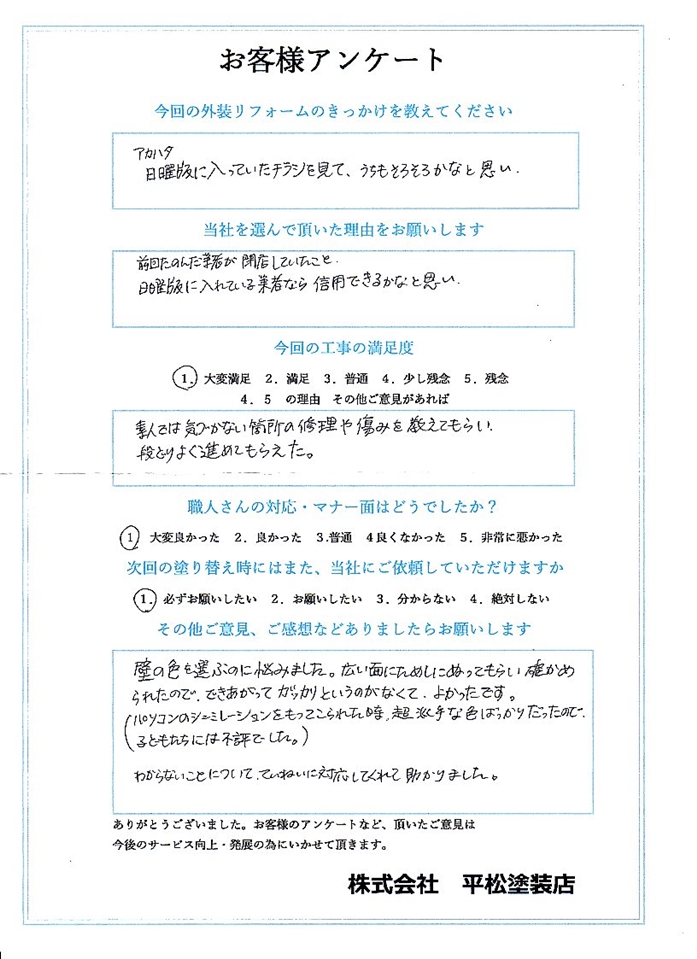 お客様アンケート
今回の外装リフォームのきっかけを教えてください
アカハタ
日曜版に入っていたチラシを見て、うちもそろそろかなと思い.
当社を選んで頂いた理由をお願いします
前回たのんだ業者が閉店していたこと.
日曜版に入れている業者なら信用できるかなと思い.
今回の工事の満足度
1. 大変満足 2. 満足 3. 普通 4. 少し残念 5. 残念
4. 5 の理由 その他ご意見があれば
素人では気づかない箇所の修理や傷みを教えてもらい.
段どりよく進めてもらえた。
職人さんの対応・マナー面はどうでしたか？
1 大変良かった 2. 良かった 3.普通 4良くなかった 5. 非常に悪かった
次回の塗り替え時にはまた、当社にご依頼していただけますか
1. 必ずお願いしたい 2. お願いしたい 3. 分からない 4. 絶対しない
その他ご意見、ご感想などありましたらお願いします
壁の色を選ぶのに悩みました。広い面にためしにぬってもらい確かめ
られたので.できあがってガッカリというのがなくて.よかったです。
(パソコンのシュミレーションをもってこられた時,超派手な色ばっかりだったので.
子どもたちには不評でした。)
わからないことについて.ていねいに対応してくれて助かりました。
ありがとうございました。お客様のアンケートなど、頂いたご意見は
今後のサービス向上・発展の為にいかせて頂きます。
株式会社 平松塗装店